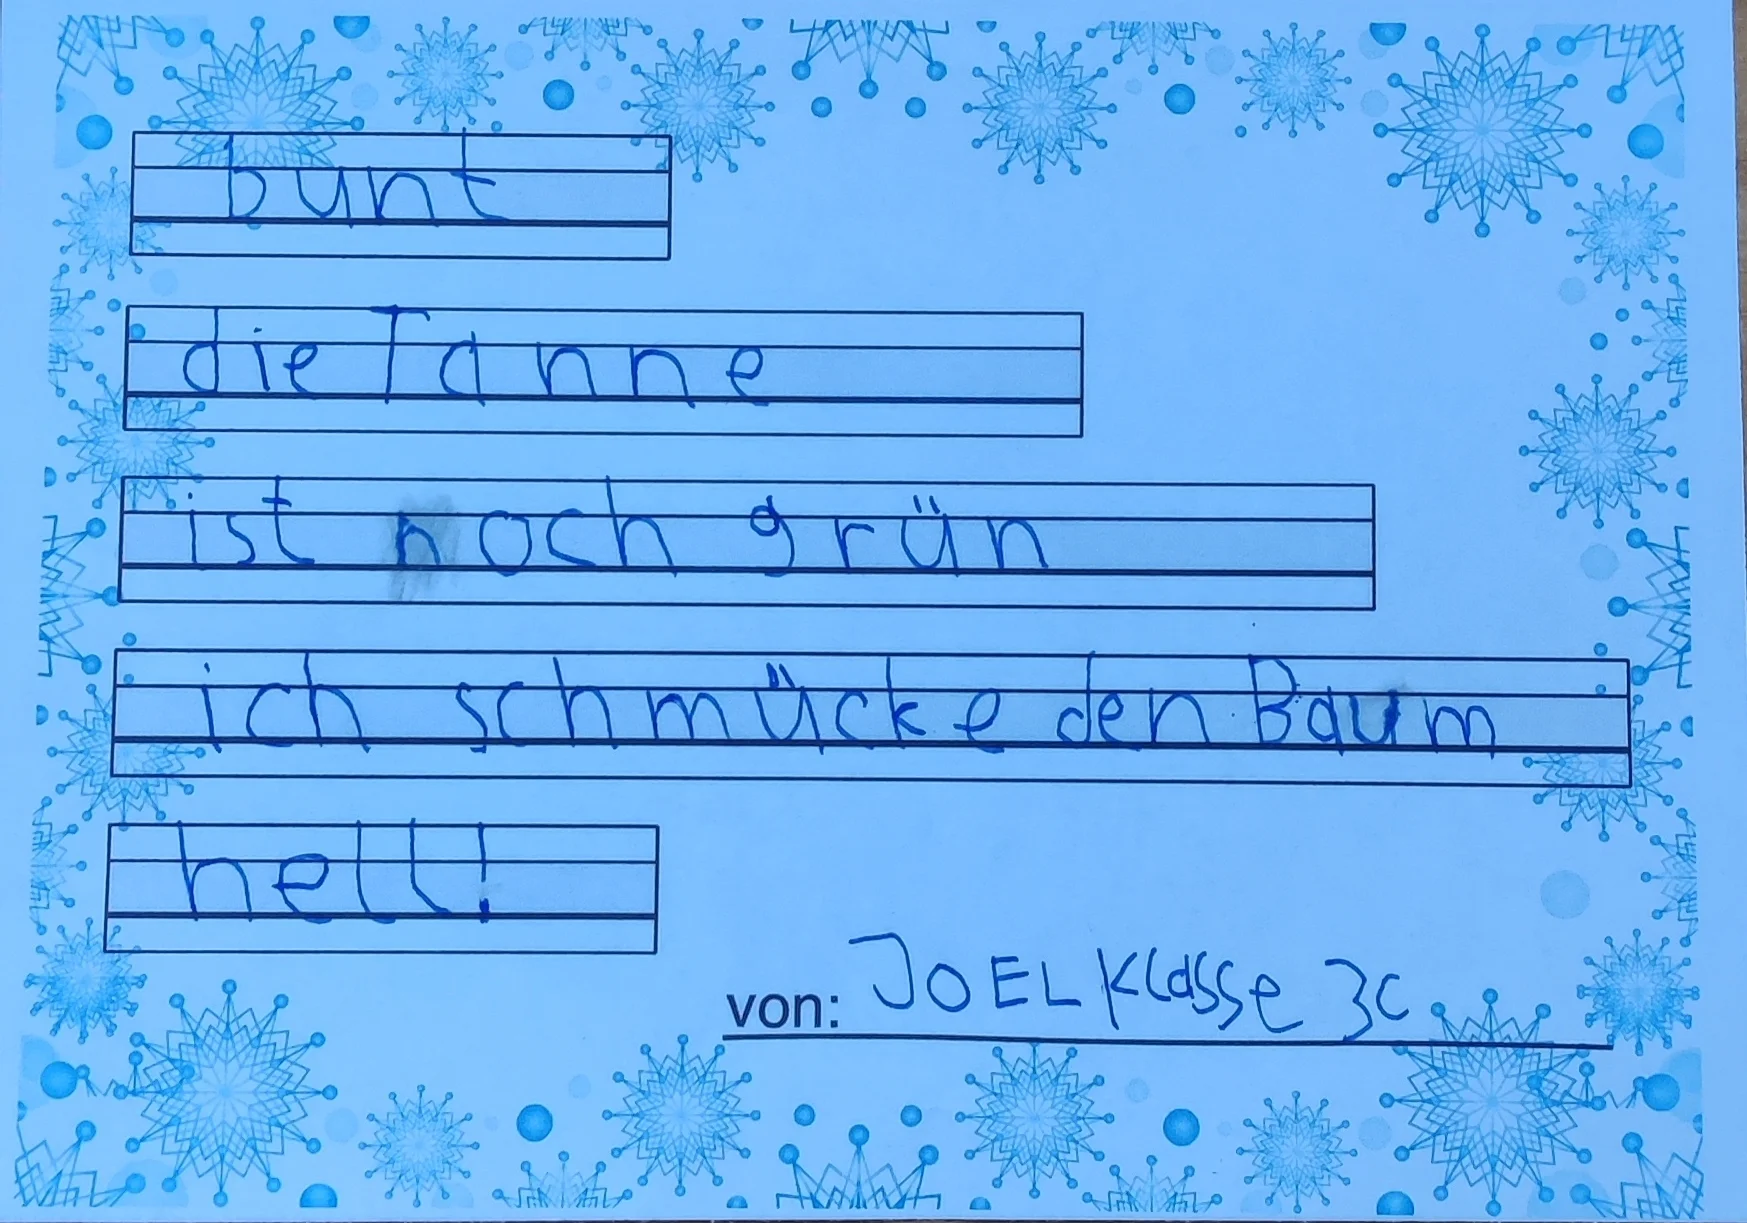 bunt
die Tanne
ist noch grün
ich schmücke den Baum
hell!
von: JOEL Klasse 3c